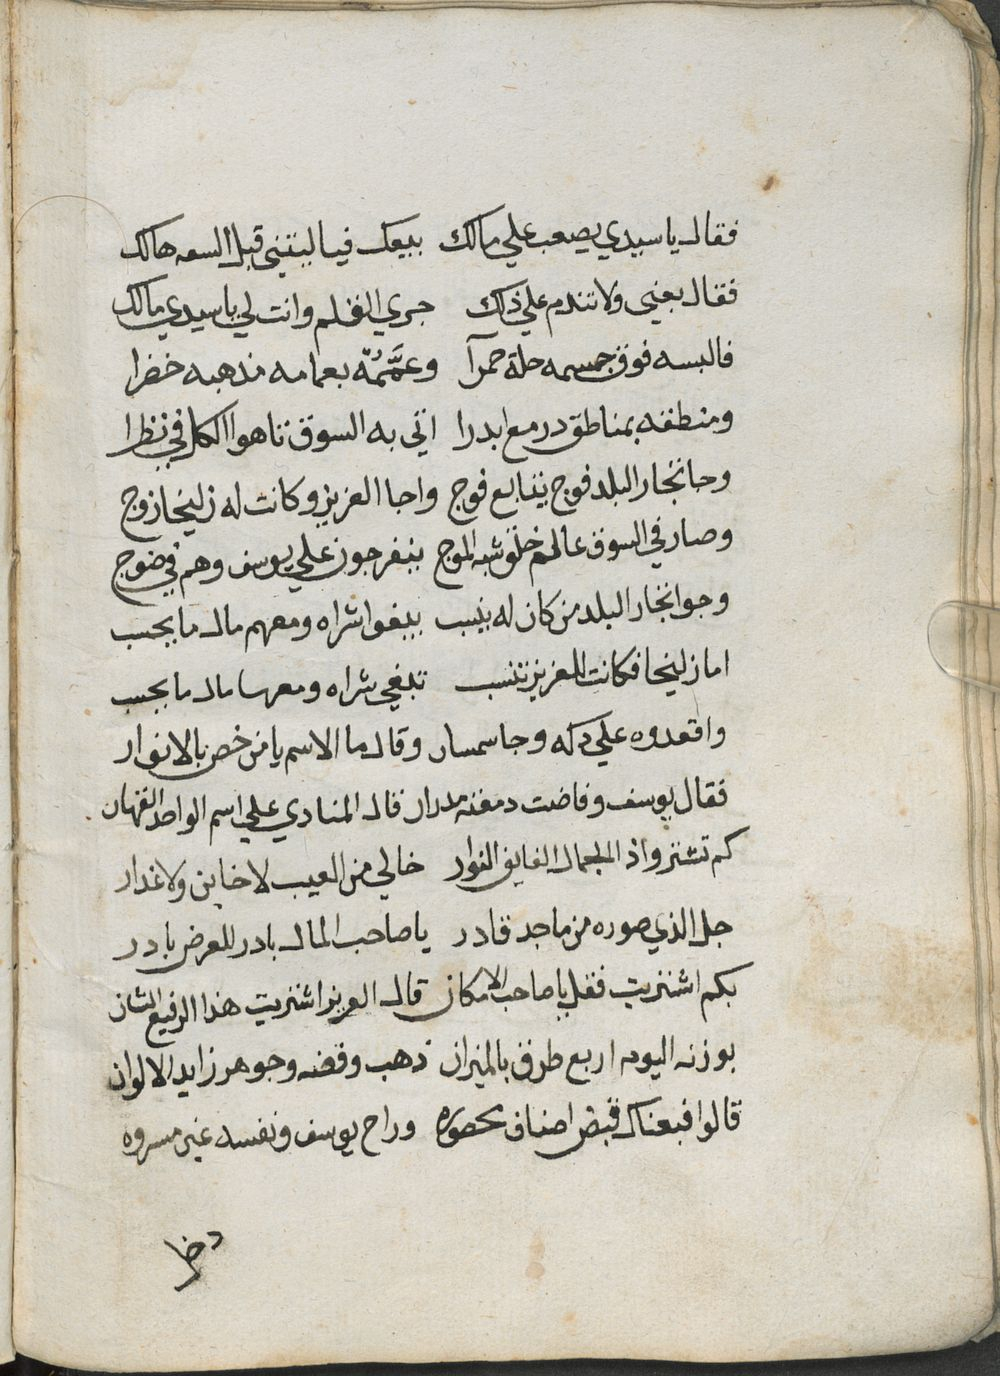 فقال ياسيدي يصعب علي مالك بيعك فيا ليتني قبل السعه هالك
فقال بعني ولا تندم علي ذلك جري القلم وانت لي ياسيدي مالك
فالبسه فوق جسمه حلة حمرآ وعمَّمُهُ بعمامه مذهبه خضرا
ومنطقه بمناطق در مع ابدرا اتي به السوق تاهوا الكل في نظرا
وجا تجار البلد فوج يتابع فوج واجا العزيز وكانت له زليخا زوج
وصار في السوق عالم خلق شبه الموج يتفرجون علي يوسف وهم في ضوج
وجوا تجار البلد من كان له ينسب يبغوا شراه ومعهم مال ما يحسب
اما زليخا فكانت للعزيز تنسب تبغي شراه ومعها مال ما يحسب
واقعدوه علي دكه وجا سمسار وقال ما الاسم يا من خص بالانوار
فقال يوسف وفاضت دمعته مدرار قال المنادي علي اسم الواحد القهار
كم تشتروا ذا الجمال الفايق النوار خالي من العيب لا خاين ولا غدار
جل الذي صوره من ماجد قادر يا صاحب المال بادر للعرض بادر
بكم اشتريت فقل يا صاحب الامكان قال العزيز اشتريت هذا الرفيع الشان
بوزنه اليوم اربع طرق بالميزان ذهب وفضه وجوهر زايد الالوان
قالوا فبعناك قبض اصناف محصوره وراح يوسف ونفسه غير مسروه